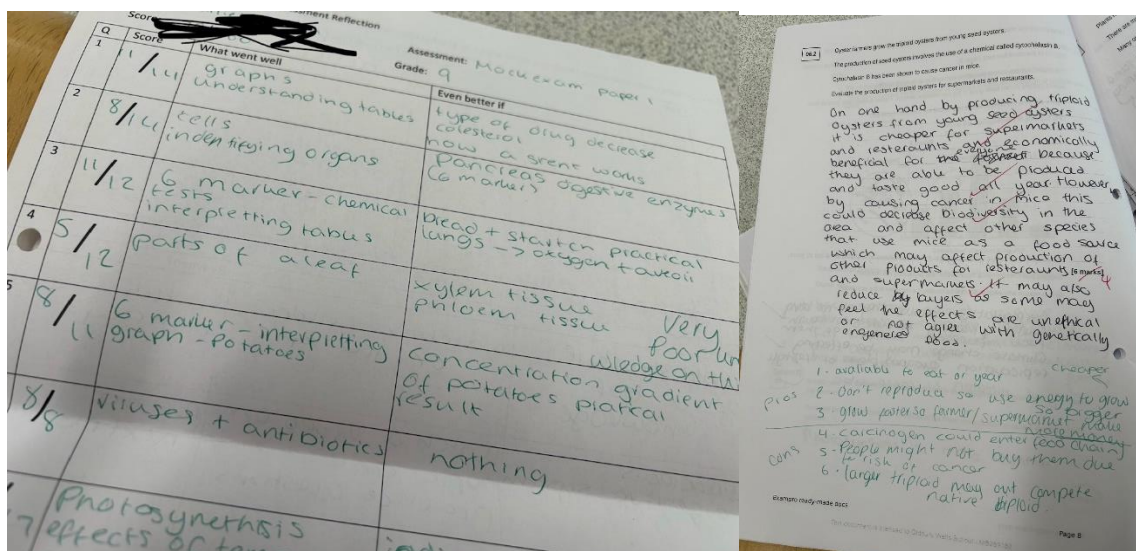 Score
ment Reflection
Assessment: Mock exam paper 1
Grade: 9
Q
Score
What went well
Even better if
1
11/14
graphs
understanding tables
type of drug decrease
colesterol
how a stent works
2
8/14
cells
indentifying organs
Pancreas digestive enzymes
(6 marker)
3
11/12
6 marker - chemical
tests
interpretting tabus
bread + starch practical
lungs -> oxygen + aveoli
4
5/12
parts of a leaf
xylem tissue
phloem tissue
Very
poor
wledge on th
5
8/11
6 marker - interpretting
graph - potatoes
concentration gradient
of potatoes pratcal
result
8/8
viruses + antibiotics
nothing
Photosynethsis
effects of
06.2
Oyster farmers grow the triploid oysters from young seed oysters.
The production of seed oysters involves the use of a chemical called cytochalasin B.
Cytochalasin B has been shown to cause cancer in mice.
Evaluate the production of triploid oysters for supermarkets and restaurants.
On one hand by producing triploid
Oysters from young seed oysters
it is cheaper for supermarkets
and resteraunts and economically
beneficial for the everyone because
they are able to be produced
and taste good all year. However
by causing cancer in mice this
could decrease biodiversity in the
area and affect other species
that use mice as a food source
which may affect production of
other products for resteraunts [6 marks] 4
and supermarkets. It may also
reduce buyers as some may
feel the effects are unethical
or not agree with genetically
engenered food.
cheaper
1. avaliable to eat all year
pros
2. Don't reproduce so use energy to grow
so bigger
3. grow faster so farmer/supermarket make
more money
4. carcinogen could enter food chain
cons
5. People might not buy them due
to risk of cancer
6. larger triploid may out compete
native diploid.
Exampro ready-made asses
Page 8